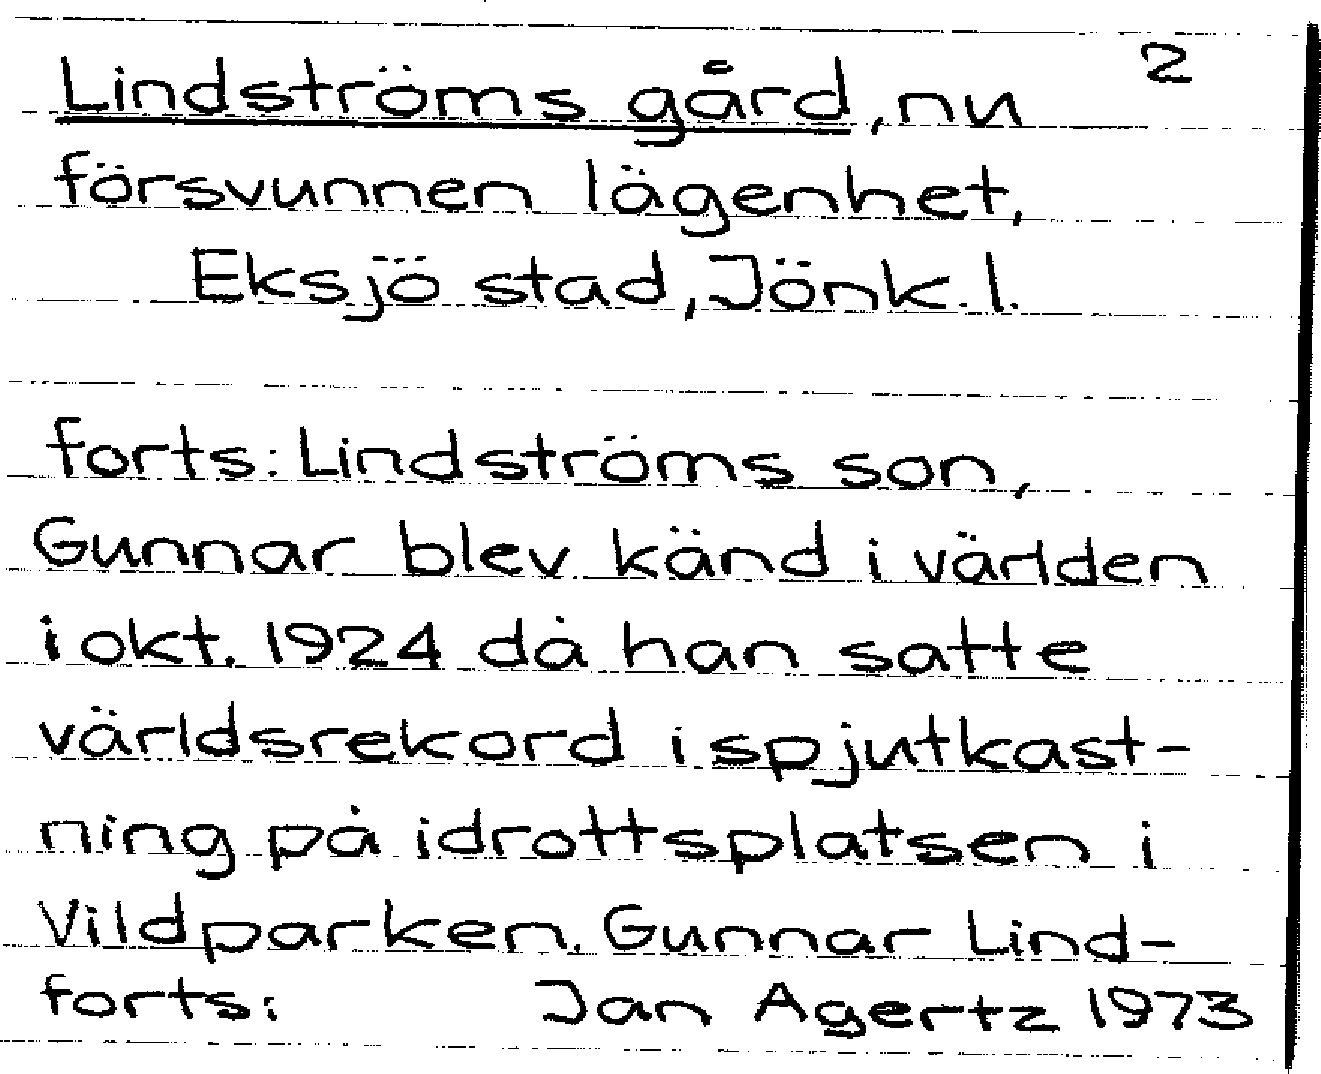 Lindströms gård, nu 2
försvunnen lägenhet,
Eksjö stad, Jönk. l.
forts: Lindströms son,
Gunnar blev känd i världen
i okt. 1924 då han satte
världsrekord i spjutkast-
ning på idrottsplatsen i
Vildparken. Gunnar Lind-
forts: Jan Agertz 1973